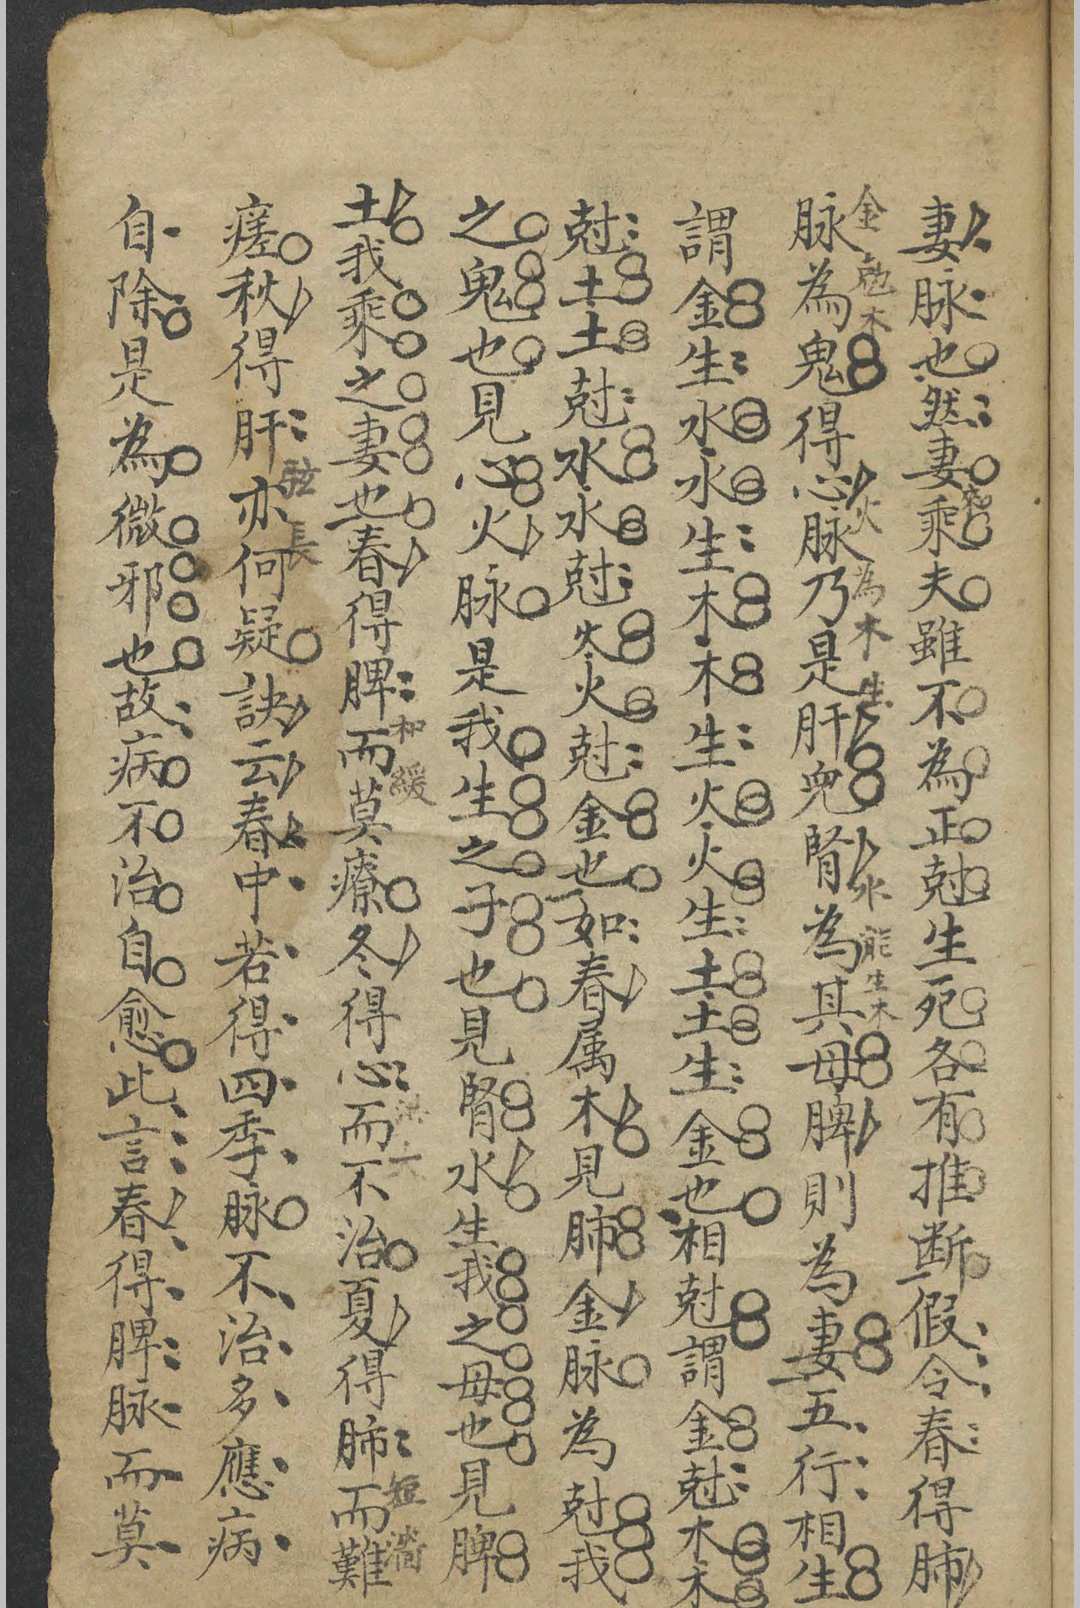 妻脉也然妻乘夫雖不為正尅生死各有推斷假令春得肺
脉為鬼得心脉乃是肝兒腎為其母脾則為妻五行相生
金尅木
火為木生
水能生木
謂金生水水生木木生火火生土土生金也相尅謂金尅木木
尅土土尅水水尅火火尅金也如春属木見肺金脉為尅我
之鬼也見心火脉是我生之子也見腎水生我之母也見脾
土我乘之妻也春得脾而莫療冬得心而不治夏得肺而難
和緩
洪大
短濇
瘥秋得肝亦何疑訣云春中若得四季脉不治多應病
弦長
自除是為微邪也故病不治自愈此言春得脾脉而莫